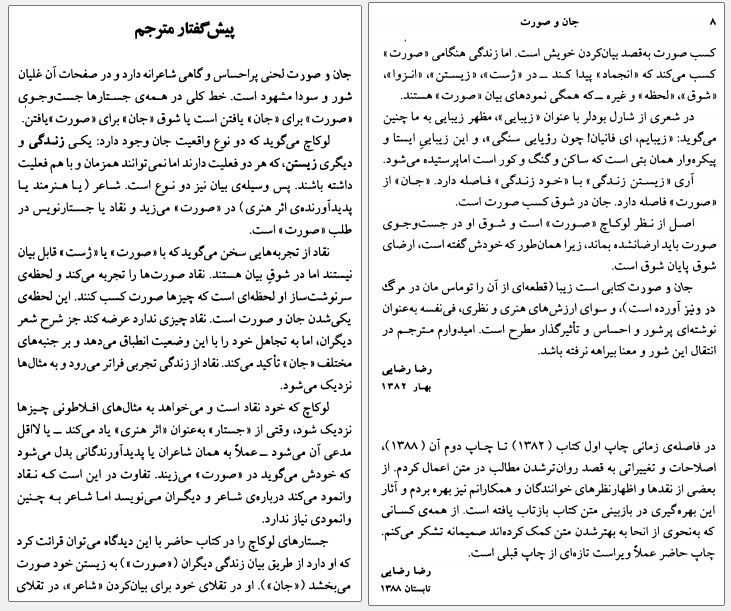 پیش‌گفتار مترجم
جان و صورت لحنی پراحساس و گاهی شاعرانه دارد و در صفحات آن غلیان
شور و سودا مشهود است. خط کلی در همه‌ی جستارها جست‌وجوی
«صورت» برای «جان» یافتن است یا شوق «جان» برای «صورت»یافتن.
لوکاچ می‌گوید که دو نوع واقعیت جان وجود دارد: یکی زندگی و
دیگری زیستن، که هر دو فعلیت دارند اما نمی‌توانند همزمان و با هم فعلیت
داشته باشند. پس وسیله‌ی بیان نیز دو نوع است. شاعر (یا هنرمند یا
پدیدآورنده‌ی اثر هنری) در «صورت» می‌زید و نقاد یا جستارنویس در
طلب «صورت» است.
نقاد از تجربه‌هایی سخن می‌گوید که با «صورت» یا «ژست» قابل بیان
نیستند اما در شوقِ بیان هستند. نقاد صورت‌ها را تجربه می‌کند و لحظه‌ی
سرنوشت‌ساز او لحظه‌ای است که چیزها صورت کسب کنند. این لحظه‌ی
یکی‌شدن جان و صورت است. نقاد چیزی ندارد عرضه کند جز شرح شعر
دیگران، اما به تجاهل خود را با این وضعیت انطباق می‌دهد و بر جنبه‌های
مختلف «جان» تأکید می‌کند. نقاد از زندگی تجربی فراتر می‌رود و به مثال‌ها
نزدیک می‌شود.
لوکاچ که خود نقاد است و می‌خواهد به مثال‌های افلاطونی چیزها
نزدیک شود، وقتی از «جستار» به‌عنوان «اثر هنری» یاد می‌کند ــ یا لااقل
مدعی آن می‌شود ــ عملاً به همان شاعران یا پدیدآورندگانی بدل می‌شود
که خودش می‌گوید در «صورت» می‌زیند. تفاوت در این است که نقاد
وانمود می‌کند درباره‌ی شاعر و دیگران می‌نویسد اما شاعر به چنین
وانمودی نیاز ندارد.
جستارهای لوکاچ را در کتاب حاضر با این دیدگاه می‌توان قرائت کرد
که او دارد از طریق بیان زندگی دیگران («صورت») به زیستن خود صورت
می‌بخشد («جان»). او در تقلای خود برای بیان‌کردن «شاعر»، در تقلای
۸ جان و صورت
کسب صورت به‌قصد بیان‌کردن خویش است. اما زندگی هنگامی «صورت»
کسب می‌کند که «انجماد» پیدا کند ــ در «ژست»، «زیستن»، «انزوا»،
«شوق»، «لحظه» و غیره ــ که همگی نمودهای بیان «صورت» هستند.
در شعری از شارل بودلر با عنوان «زیبایی»، مظهر زیبایی به ما چنین
می‌گوید: «زیبایم، ای فانیان! چون رؤیایی سنگی»، و این زیباییِ ایستا و
پیکره‌وار همان بتی است که ساکن و گنگ و کور است اما پرستیده می‌شود.
آری «زیستن زندگی» با «خود زندگی» فاصله دارد. «جان» از
«صورت» فاصله دارد. جان در شوق کسب صورت است.
اصل از نظر لوکاچ «صورت» است و شوق او در جست‌وجوی
صورت باید ارضانشده بماند، زیرا همان‌طور که خودش گفته است، ارضای
شوق پایان شوق است.
جان و صورت کتابی است زیبا (قطعه‌ای از آن را توماس مان در مرگ
در ونیز آورده است)، و سوای ارزش‌های هنری و نظری، فی‌نفسه به‌عنوان
نوشته‌ای پرشور و احساس و تأثیرگذار مطرح است. امیدوارم مترجم در
انتقال این شور و معنا بیراهه نرفته باشد.
رضا رضایی
بهار ۱۳۸۲
در فاصله‌ی زمانی چاپ اول کتاب (۱۳۸۲) تا چاپ دوم آن (۱۳۸۸)،
اصلاحات و تغییراتی به قصد روان‌ترشدن مطالب در متن اعمال کردم. از
بعضی از نقدها و اظهارنظرهای خوانندگان و همکارانم نیز بهره بردم و آثار
این بهره‌گیری در بازبینی متن کتاب بازتاب یافته است. از همه‌ی کسانی
که به‌نحوی از انحا به بهترشدن متن کمک کرده‌اند صمیمانه تشکر می‌کنم.
چاپ حاضر عملاً ویراست تازه‌ای از چاپ قبلی است.
رضا رضایی
تابستان ۱۳۸۸